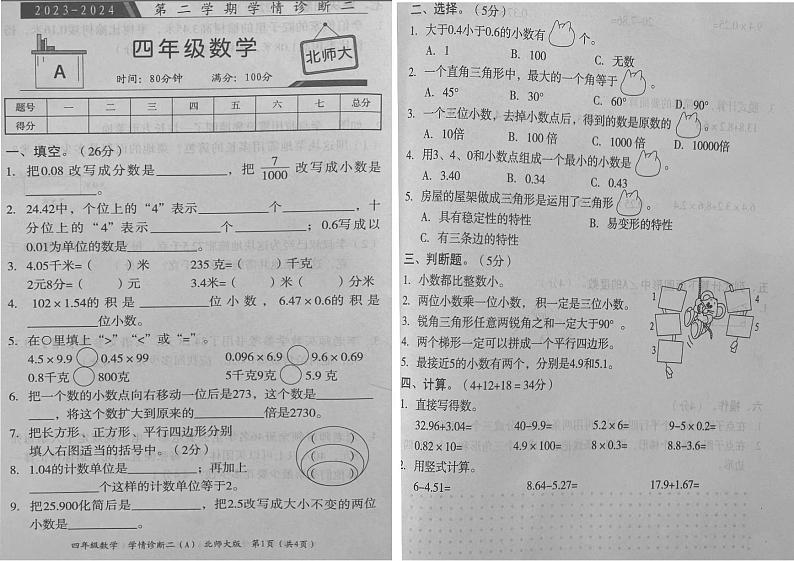 2023-2024 第二学期学情诊断二
四年级数学
A
北师大
时间：80分钟 满分：100分
题号 一 二 三 四 五 六 七 总分
得分
一、填空。（26分）
1. 把0.08 改写成分数是________，把 7/1000 改写成小数是
________。
2. 24.42中，个位上的“4”表示________个________，十
分位上的“4”表示________个________；0.6写成以
0.01为单位的数是________。
3. 4.05千米=（ ）米 235克=（ ）千克
2元8分=（ ）元 3.4米=（ ）米（ ）分米
4. 102×1.54的积是________位小数，6.47×0.6的积是
________位小数。
5. 在○里填上“>”“<”或“=”。
4.5×9.9○0.45×99 0.096×6.9○9.6×0.69
0.8千克○800克 5千克9克○5.9 克
6. 把一个数的小数点向右移动一位后是273，这个数是________
____，将这个数扩大到原来的________倍是2730。
7. 把长方形、正方形、平行四边形分别
填入右图适当的括号中。（2分）
8. 1.04的计数单位是________；再加上
________个这样的计数单位等于2。
9. 把25.900化简后是________，把2.5改写成大小不变的两位
小数是________。
四年级数学 学情诊断二（A）北师大版 第1页（共4页）
二、选择。（5分）
1. 大于0.4小于0.6的小数有 个。
A. 1 B. 100 C. 无数
2. 一个直角三角形中，最大的一个角等于 。
A. 45° B. 30° C. 60° D. 90°
3. 一个三位小数，去掉小数点后，得到的数是原数的 。
A. 10倍 B. 100 倍 C. 1000 倍 D. 10000倍
4. 用3、4、0和小数点组成一个最小的小数是 。
A. 3.40 B. 0.34 C. 0.43
5. 房屋的屋架做成三角形是运用了三角形 。
A. 具有稳定性的特性 B. 易变形的特性
C. 有三条边的特性
三、判断题。（5分）
1. 小数都比整数小。
2. 两位小数乘一位小数，积一定是三位小数。
3. 锐角三角形任意两锐角之和一定大于90°。
4. 两个梯形一定可以拼成一个平行四边形。
5. 最接近5的小数有两个，分别是4.9和5.1。
1 2 3 4 5
四、计算。（4+12+18＝34分）
1. 直接写得数。
32.96+3.04= 40-9.9= 5.2×6= 9-5×0.2=
0.82×10= 4.9×100= 8×0.3= 8.8-3.6=
2. 用竖式计算。
6-4.51= 8.64-5.27= 17.9+1.67=